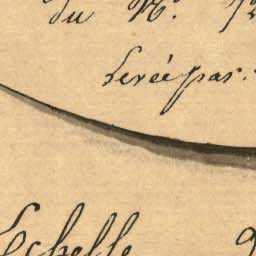 du N.
Levée par
Echelle